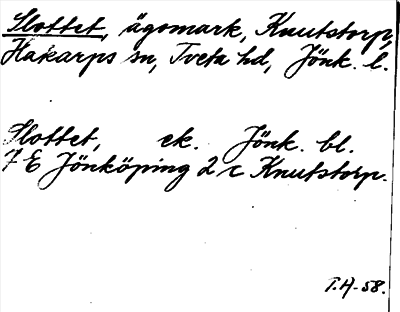 Slottet, ägomark, Knutstorp,
Hakarps sn, Tveta hd, Jönk. l.
Slottet, ek. Jönk. bl.
7 E Jönköping 2 c Knutstorp.
T.H-58.